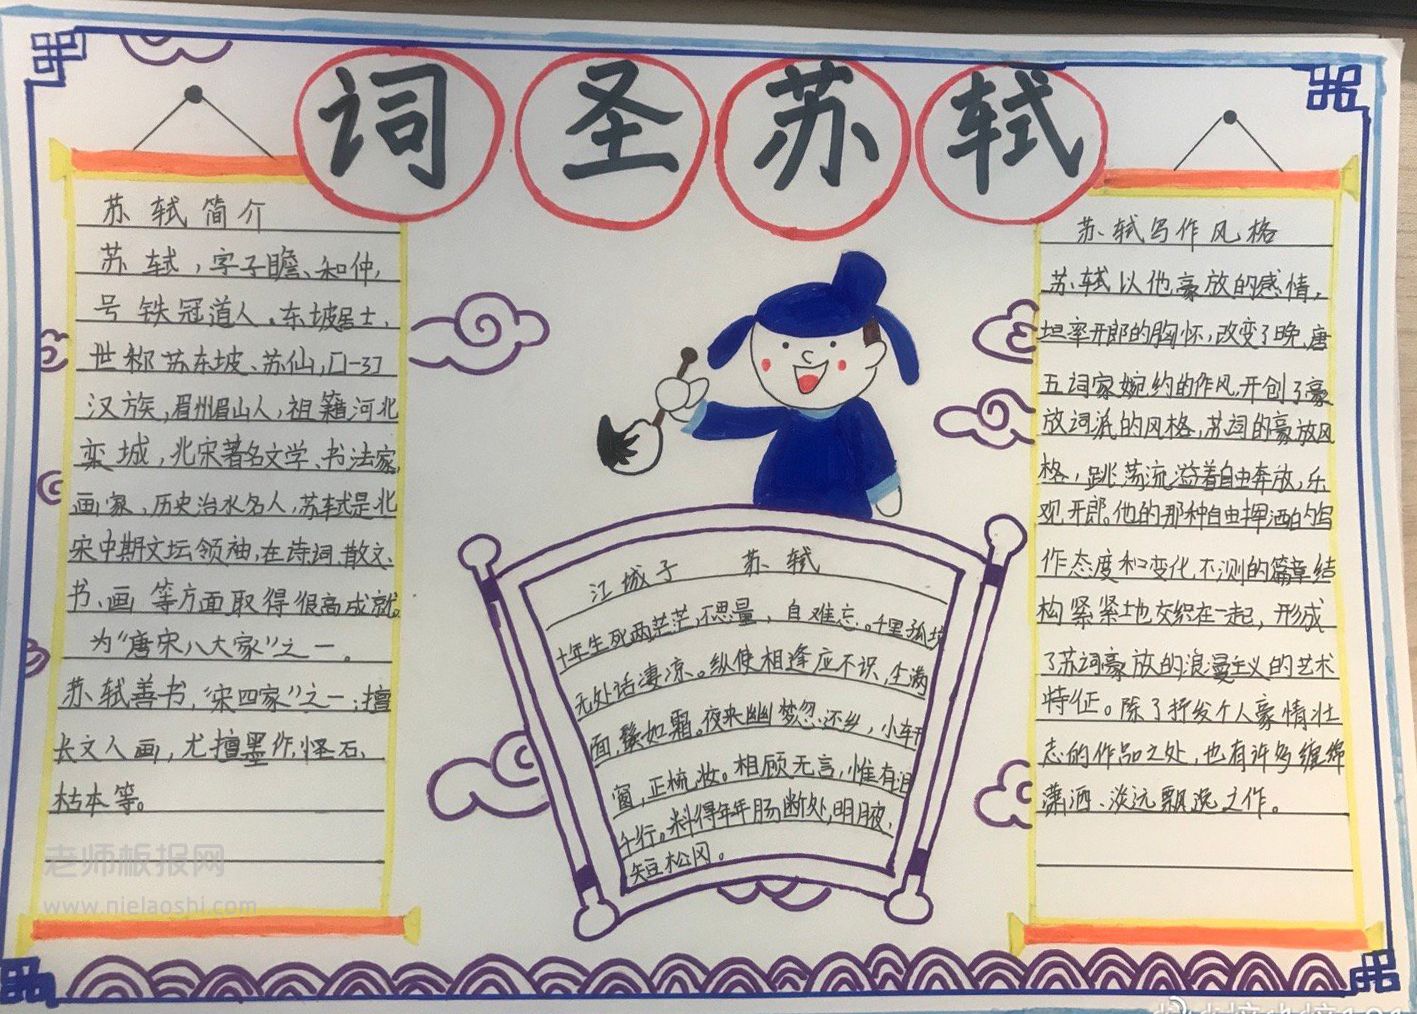 词圣苏轼
苏轼简介
苏轼，字子瞻、和仲，
号铁冠道人。东坡居士，
世称苏东坡、苏仙，
汉族，眉州眉山人，祖籍河北
栾城，北宋著名文学、书法家，
画家，历史治水名人，苏轼是北
宋中期文坛领袖，在诗词、散文、
书、画等方面取得很高成就。
为“唐宋八大家”之一。
苏轼善书，“宋四家”之一；擅
长文人画，尤擅墨作，怪石、
枯本等。
江城子 苏轼
十年生死两茫茫，不思量，自难忘。千里孤坟
无处话凄凉。纵使相逢应不识，尘满
面，鬓如霜。夜来幽梦忽还乡，小轩
窗，正梳妆。相顾无言，惟有泪
千行。料得年年肠断处，明月夜，
短松冈。
苏轼写作风格
苏轼以他豪放的感情，
坦率开郎的胸怀，改变了晚唐
五词家婉约的作风，开创了豪
放词派的风格，苏词的豪放风
格，跳荡流溢着自由奔放，乐
观开郎。他的那种自由挥洒的写
作态度和变化不测的篇章结
构紧紧地交织在一起，形成
了苏词豪放的浪漫主义的艺术
特征。除了抒发个人豪情壮
志的作品之处，也有许多缠绵
潇洒、淡远飘逸之作。
老师板报网
www.nielaoshi.com